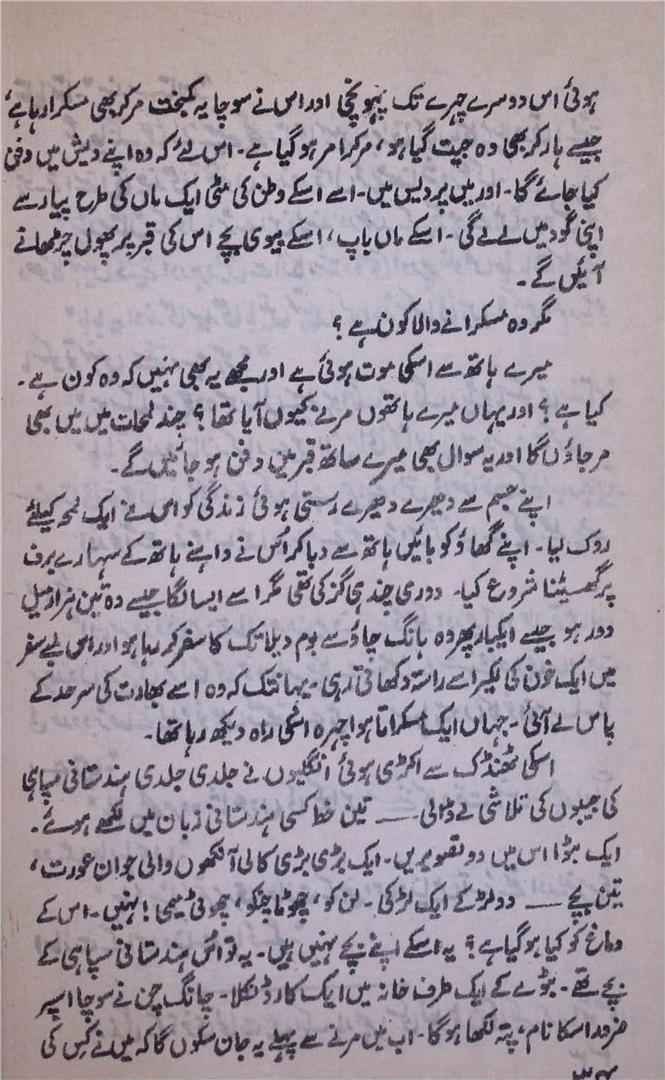 ہوئی اس دوسرے چہرے تک پہونچی اور اس نے سوچا یہ کمبخت مر کر بھی مسکرا رہا ہے،
جیسے ہار کر بھی وہ جیت گیا ہو، مر کر امر ہو گیا ہے۔ اس لئے کہ وہ اپنے دیش میں دفن
کیا جائے گا۔ اور میں پردیس میں۔ اسے اسکے وطن کی مٹی ایک ماں کی طرح پیار سے
اپنی گود میں لے لے گی۔ اسکے ماں باپ، اسکے بیوی بچے اس کی قبر پر پھول چڑھانے
آئیں گے۔
مگر وہ مسکرانے والا کون ہے؟
میرے ہاتھ سے اسکی موت ہوئی ہے اور مجھے یہ بھی نہیں کہ وہ کون ہے۔
کیا ہے؟ اور یہاں میرے ہاتھوں مرنے کیوں آیا تھا؟ چند لمحات میں میں بھی
مر جاؤں گا اور یہ سوال بھی میرے ساتھ قبر میں دفن ہو جائیں گے۔
اپنے جسم سے دھیرے دھیرے رستی ہوئی زندگی کو اس نے ایک لمحہ کیلئے
روک لیا۔ اپنے گھاؤ کو بائیں ہاتھ سے دبا کر اُس نے داہنے ہاتھ کے سہارے برف
پر گھسیٹنا شروع کیا۔ دوری چند ہی گز کی تھی مگر اسے ایسا لگا جیسے وہ تین ہزار میل
دور ہو جیسے ایکبار پھر وہ ہانگ چاؤ سے بوم ڈیلا تک کا سفر کر رہا ہو اور اس لمبے سفر
میں ایک خون کی لکیر اسے راستہ دکھاتی رہی۔ یہانتک کہ وہ اسے بھارت کی سرحد کے
پاس لے آئی۔ جہاں ایک مسکراتا ہوا چہرہ اسکی راہ دیکھ رہا تھا۔
اسکی ٹھنڈک سے اکڑی ہوئی انگلیوں نے جلدی جلدی ہندستانی سپاہی
کی جیبوں کی تلاشی لے ڈالی ــــ تین خط کسی ہندستانی زبان میں لکھے ہوئے۔
ایک بٹوا اس میں دو تصویریں۔ ایک بڑی بڑی کالی آنکھوں والی جوان عورت،
تین بچے ــــ دو لڑکے ایک لڑکی۔ لن کو، چھوٹا چنکو، چھوٹی ٹیمی! نہیں۔ اس کے
دماغ کو کیا ہو گیا ہے؟ یہ اسکے اپنے بچے نہیں ہیں۔ یہ تو اُس ہندستانی سپاہی کے
بچے تھے۔ بٹوے کے ایک طرف خانہ میں ایک کارڈ نکلا۔ چانگ چن نے سوچا اسپر
ضرور اسکا نام، پتہ لکھا ہوگا۔ اب میں مرنے سے پہلے یہ جان سکوں گا کہ میں نے کس کی